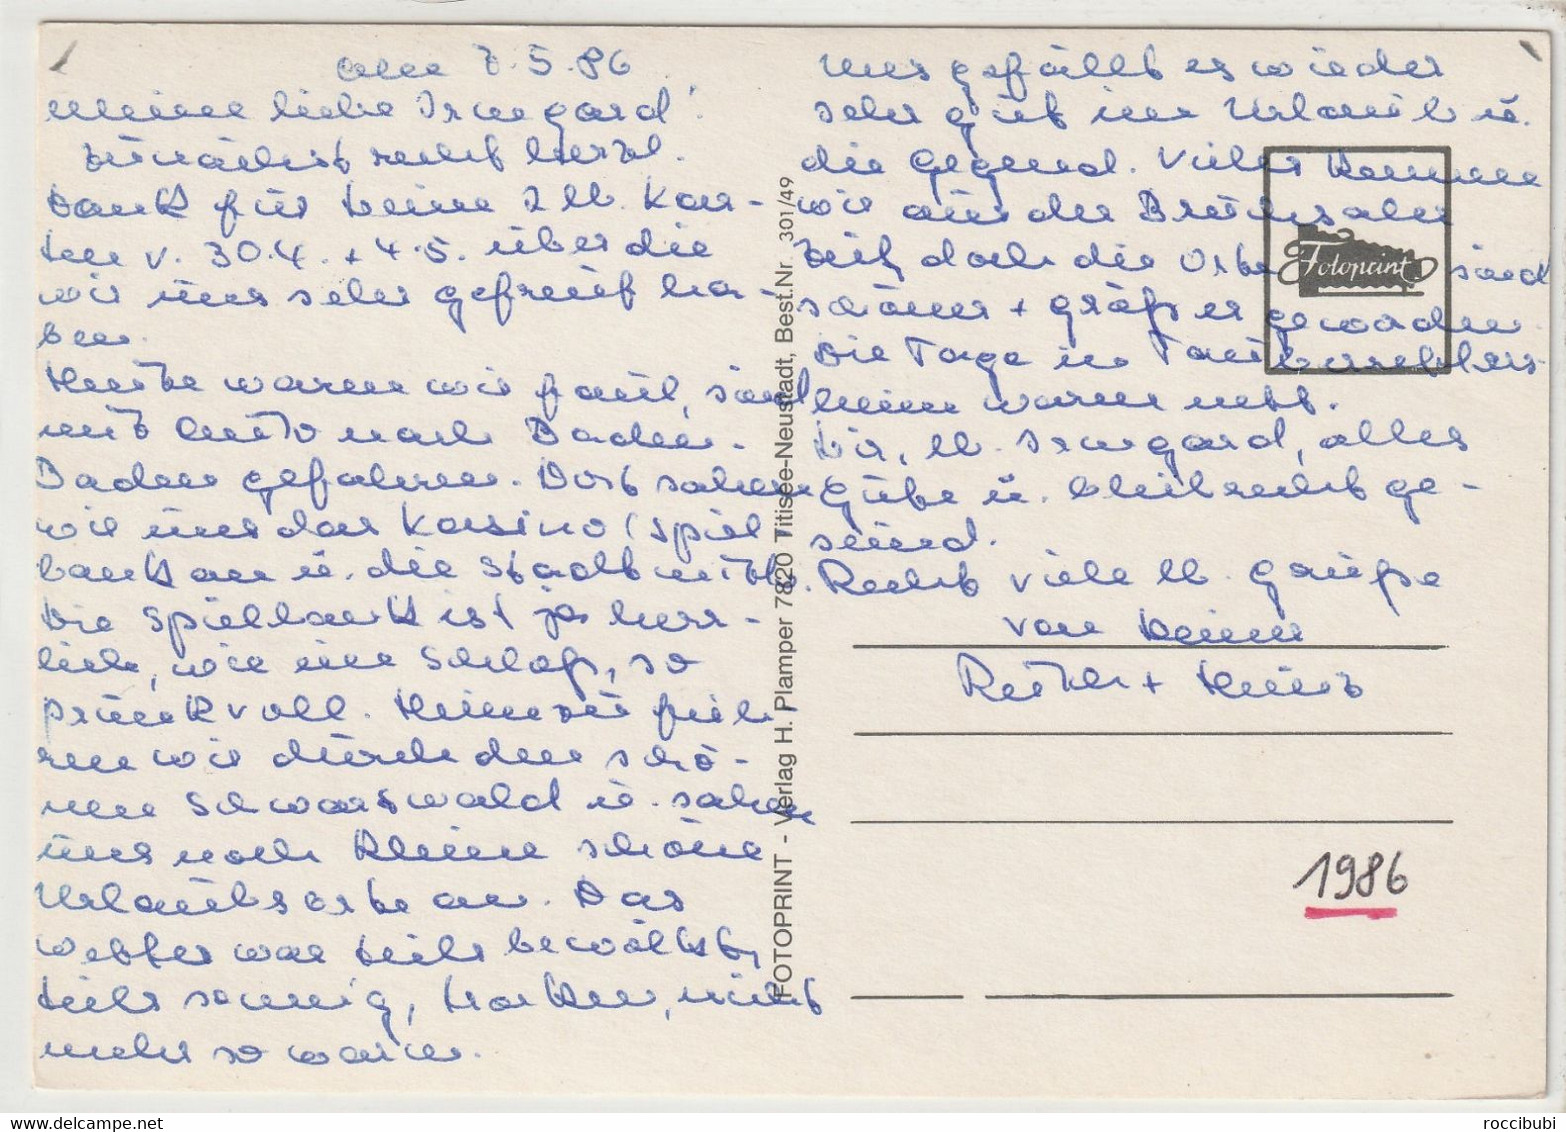 am 7.5.86
Meine liebe Irmgard!
Zunächst recht herzl.
Dank für Deine 2 lb. Kar-
ten v. 30.4. + 4.5. über die
wir uns sehr gefreut ha-
ben.
Heute waren wir faul, sind
mit Auto nach Baden-
Baden gefahren. Dort sahen
wir uns das Kasino (Spiel-
bank an u. die Stadtmitte.
Die Spielbank ist ja herr-
lich, wie im Schloß, so
prunkvoll. Hinzu fuh-
ren wir durch den schö-
nen Schwarzwald u. sahen
uns noch kleine schöne
Urlaubsorte an. Das
Wetter war teils bewölkt,
teils sonnig, trocken, nicht
mehr so warm.
Uns gefällt es wieder
sehr gut im Urlaub u.
die Gegend. Vieles kennen
wir aus der Bruchsaler
Zeit, doch die Orte sind
schöner + größer geworden.
Die Tage in Tauberbischofs-
heim waren nett.
Dir, lb. Irmgard, alles
Gute u. bleib recht ge-
sund.
Recht viele lb. Grüße
von Deinen
Heinz
Fotoprint
FOTOPRINT - Verlag H. Plamper 7820 Titisee-Neustadt, Best.Nr. 301/49
1986
roccibubi